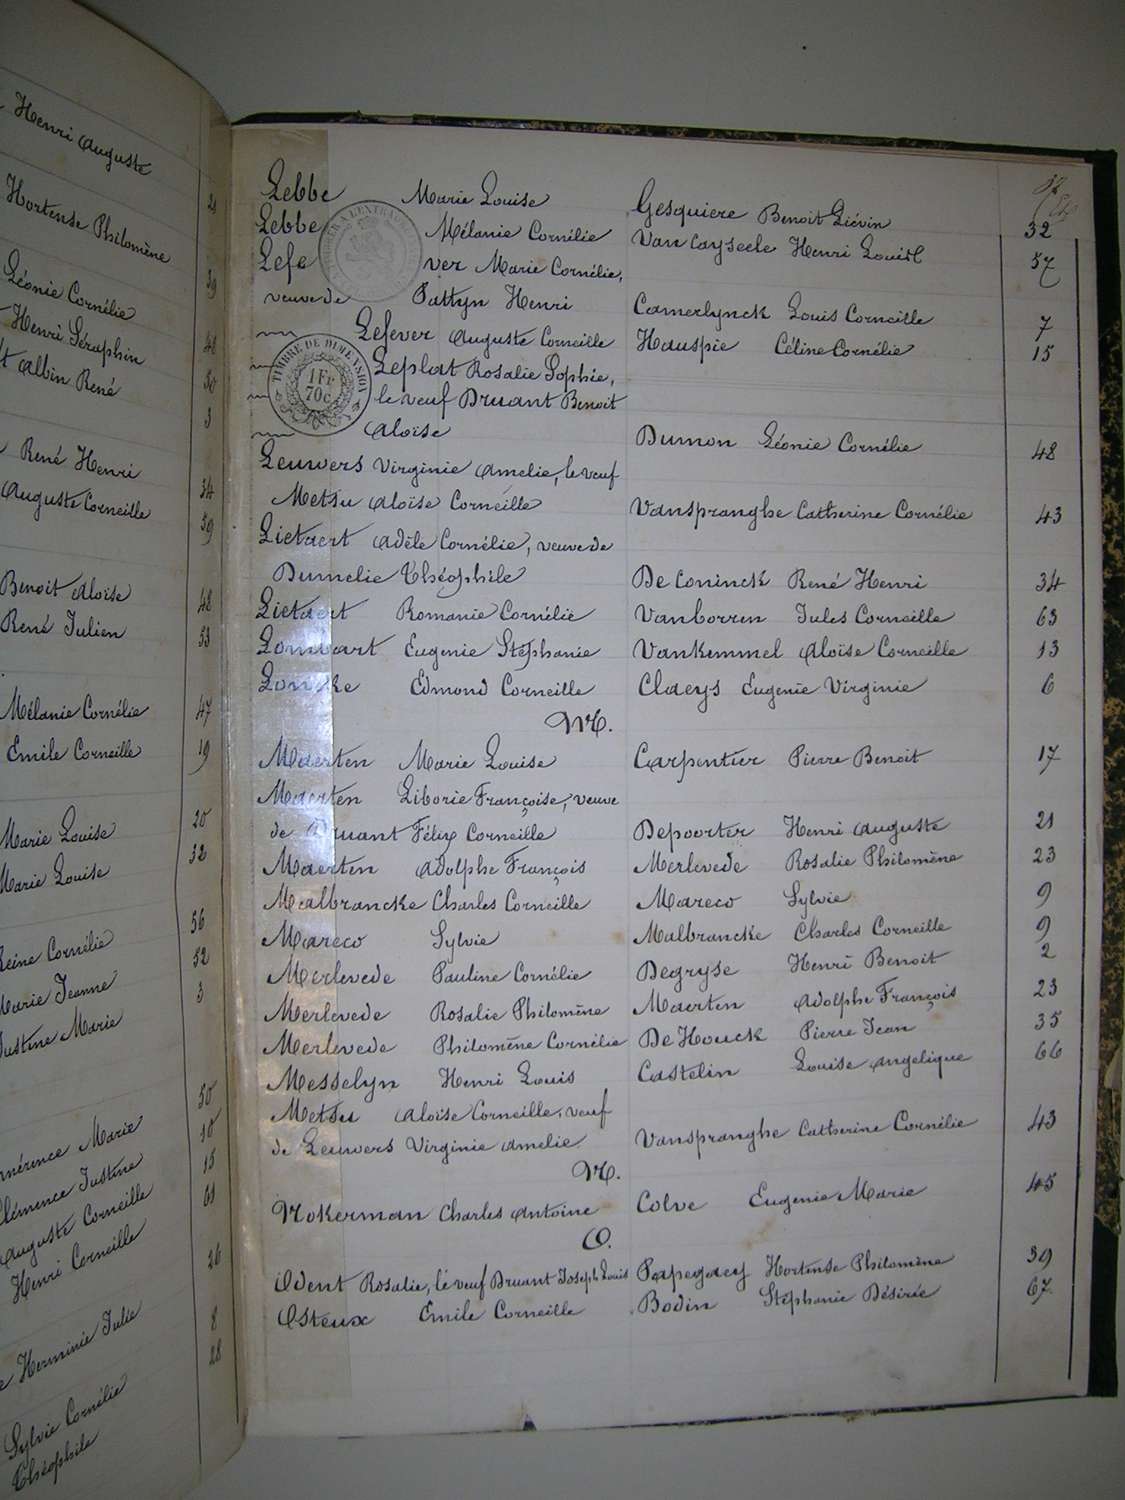 Henri Auguste 21
Hortense Philomène 39
Léonie Cornélie 48
Henri Séraphin 50
Albin René 3
René Henri 34
Auguste Corneille 59
Benoit Aloïse 48
René Julien 53
Mélanie Cornélie 47
Emile Corneille 19
Marie Louise 20
Marie Louise 32
Reine Cornélie 56
Marie Jeanne 52
Justine Marie 3
Marie 50
Clémence Justine 10
Auguste Corneille 15
Henri Corneille 61
26
Herminie Julie 8
28
Sylvie Cornélie
Théophile
Lebbe Marie Louise Gesquiere Benoit Liévin 32
Lebbe Mélanie Cornélie Vancayseele Henri Louis 57
Lefever Marie Cornélie,
veuve de Pattyn Henri Camerlynck Louis Corneille 7
Lefever Auguste Corneille Hauspie Céline Cornélie 15
TIMBRE DE DIMENSION
1 Fr
70c.
Leplat Rosalie Sophie,
le veuf Druant Benoit
Aloïse Dumon Léonie Cornélie 48
Leuwers Virginie Amelie, le veuf
Metsu Aloïse Corneille Vanspranghe Catherine Cornélie 43
Lietaert Adèle Cornélie, veuve de
Dumelie Théophile De Coninck René Henri 34
Lietaert Romanie Cornélie Vanborren Jules Corneille 63
Lombart Eugenie Stéphanie Vankemmel Aloïse Corneille 13
Loncke Edmond Corneille Claeys Eugenie Virginie 6
M.
Maerten Marie Louise Carpentier Pierre Benoit 17
Maerten Liborie Françoise, veuve
de Druant Félix Corneille Depoorter Henri Auguste 21
Maerten Adolphe François Merlevede Rosalie Philomène 23
Malbrancke Charles Corneille Mareco Sylvie 9
Mareco Sylvie Malbrancke Charles Corneille 9
Merlevede Pauline Cornélie Degryse Henri Benoit 2
Merlevede Rosalie Philomène Maerten Adolphe François 23
Merlevede Philomène Cornélie De Houck Pierre Jean 35
Messelyn Henri Louis Castelin Louise Angelique 66
Metsu Aloïse Corneille, veuf
de Leuwers Virginie Amelie Vanspranghe Catherine Cornélie 43
N.
Nokerman Charles Antoine Colve Eugenie Marie 45
O.
Odent Rosalie, le veuf Druant Joseph Louis Papegaey Hortense Philomène 39
Osteux Emile Corneille Bodin Stéphanie Désirée 67